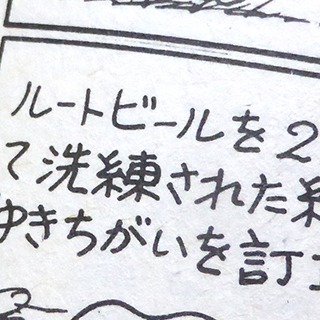 ルートビールを2
て洗練された
ゆきちがいを訂